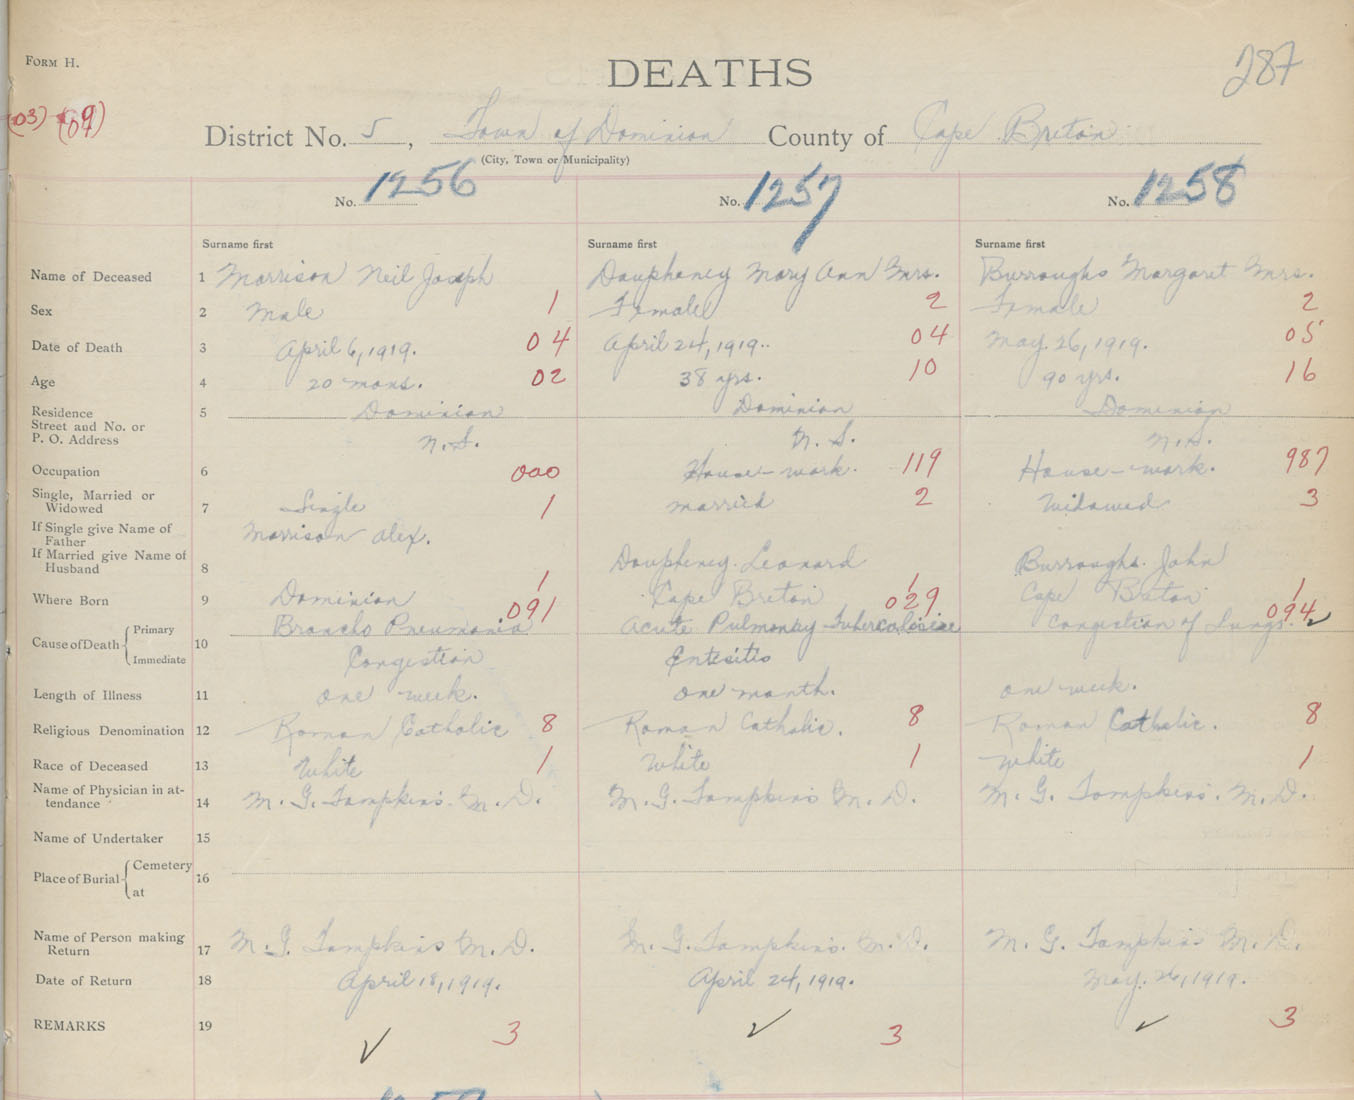 FORM H.
DEATHS
287
(03) (09)
District No. 5, Town of Dominion County of Cape Breton
(City, Town or Municipality)
No. 1256 No. 1257 No. 1258
Surname first Surname first Surname first
Name of Deceased 1 Morrison Neil Joseph Daupheney Mary Ann Mrs. Burroughs Margaret Mrs.
Sex 2 Male 1 Female 2 Female 2
Date of Death 3 April 6, 1919. 04 April 24, 1919. 04 May 26, 1919. 05
Age 4 20 mons. 02 38 yrs. 10 90 yrs. 16
Residence 5 Dominion Dominion Dominion
Street and No. or
P. O. Address N.S. N.S. N.S.
Occupation 6 000 House-work. 119 House-work. 987
Single, Married or
Widowed 7 Single 1 married 2 Widowed 3
If Single give Name of
Father Morrison Alex.
If Married give Name of
Husband 8 Daupheney Leonard Burroughs John
Where Born 9 Dominion 1 Cape Breton 1 Cape Breton 1
091 029 094
Cause of Death Primary 10 Broncho Pneumonia Acute Pulmonary Tuberculosise Congestion of Lungs.
Immediate Congestion
Length of Illness 11 one week. one month. one week.
Religious Denomination 12 Roman Catholic 8 Roman Catholic. 8 Roman Catholic. 8
Race of Deceased 13 White 1 White 1 White 1
Name of Physician in at-
tendance 14 M. G. Tompkins M. D. M. G. Tompkins M. D. M. G. Tompkins. M. D.
Name of Undertaker 15
Place of Burial Cemetery 16
at
Name of Person making
Return 17 M. G. Tompkins M. D. M. G. Tompkins. M. D. M. G. Tompkins M. D.
Date of Return 18 April 18, 1919. April 24, 1919. May. 26, 1919.
REMARKS 19 3 3 3